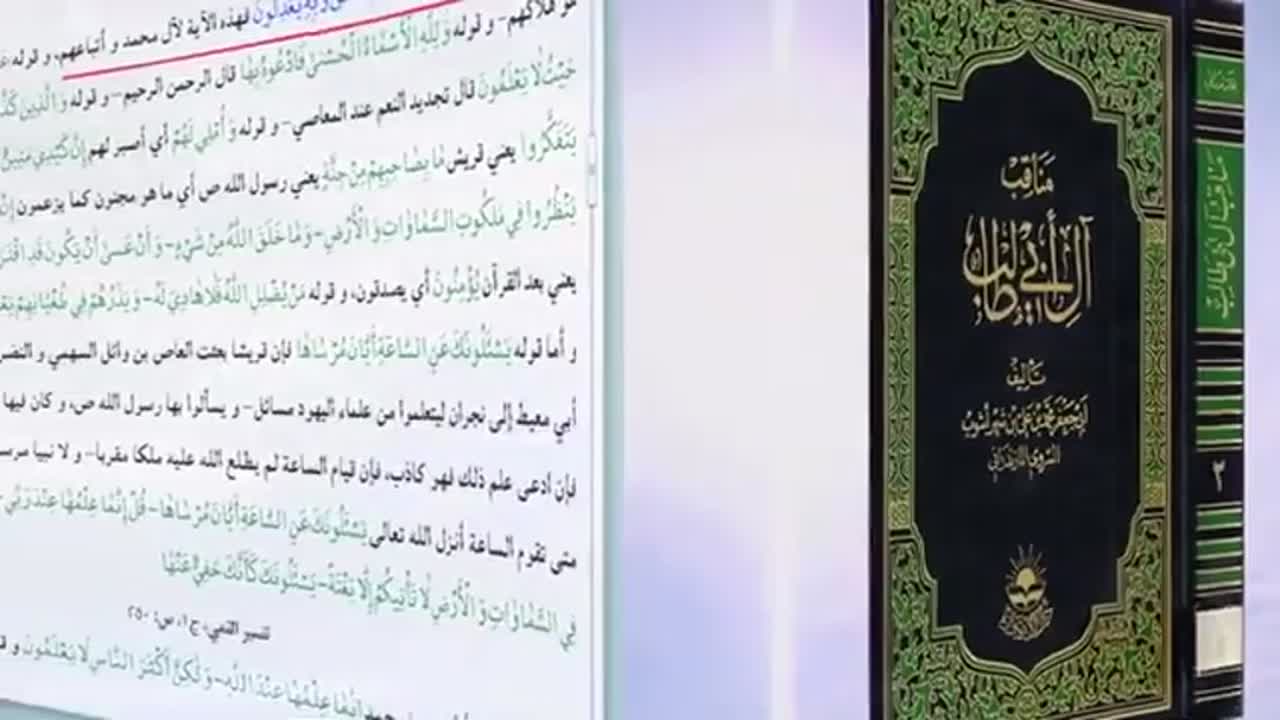 و به يعدلون فهذه الآية لآل محمد و أتباعهم، و قوله
هو هلاكهم- و قوله وَ لِلَّهِ الْأَسْمَاءُ الْحُسْنَى فَادْعُوهُ بِهَا قال الرحمن الرحيم- و قوله وَ الَّذِينَ
حَيْثُ لَا يَعْلَمُونَ قال تجديد النعم عند المعاصي- و قوله وَ أُمْلِي لَهُمْ أي أصبر لهم إِنَّ كَيْدِي مَتِينٌ
يَتَفَكَّرُوا يعني قريش مَا بِصَاحِبِهِمْ مِنْ جِنَّةٍ يعني رسول الله ص أي ما هو مجنون كما يزعمون إِنْ
يَنْظُرُوا فِي مَلَكُوتِ السَّمَاوَاتِ وَ الْأَرْضِ- وَ مَا خَلَقَ اللَّهُ مِنْ شَيْءٍ- وَ أَنْ عَسَى أَنْ يَكُونَ قَدِ
يعني بعد القرآن يُؤْمِنُونَ أي يصدقون، و قوله مَنْ يُضْلِلِ اللَّهُ فَلَا هَادِيَ لَهُ- وَ يَذَرُهُمْ فِي طُغْيَانِهِمْ
و أما قوله يَسْئَلُونَكَ عَنِ السَّاعَةِ أَيَّانَ مُرْسَاهَا فإن قريشا بعثت العاص بن وائل السهمي و النضر
أبي معيط إلى نجران ليتعلموا من علماء اليهود مسائل- و يسألوا بها رسول الله ص، و كان فيها
فإن ادعى علم ذلك فهو كاذب، فإن قيام الساعة لم يطلع الله عليه ملكا مقربا- و لا نبيا
متى تقوم الساعة أنزل الله تعالى يَسْئَلُونَكَ عَنِ السَّاعَةِ أَيَّانَ مُرْسَاهَا- قُلْ إِنَّمَا عِلْمُهَا عِنْدَ رَبِّي-
فِي السَّمَاوَاتِ وَ الْأَرْضِ لَا تَأْتِيكُمْ إِلَّا بَغْتَةً- يَسْئَلُونَكَ كَأَنَّكَ حَفِيٌّ عَنْهَا
تفسير القمي، ج١، ص: ٢٥٠
إِنَّمَا عِلْمُهَا عِنْدَ اللَّهِ- وَ لَكِنَّ أَكْثَرَ النَّاسِ لَا يَعْلَمُونَ و
مَنَاقِبُ
آلِ أَبِي طَالِبٍ
تأليف
أبي جعفر محمد بن علي بن شهر آشوب
السروي المازندراني
مناقب آل أبي طالب
٢